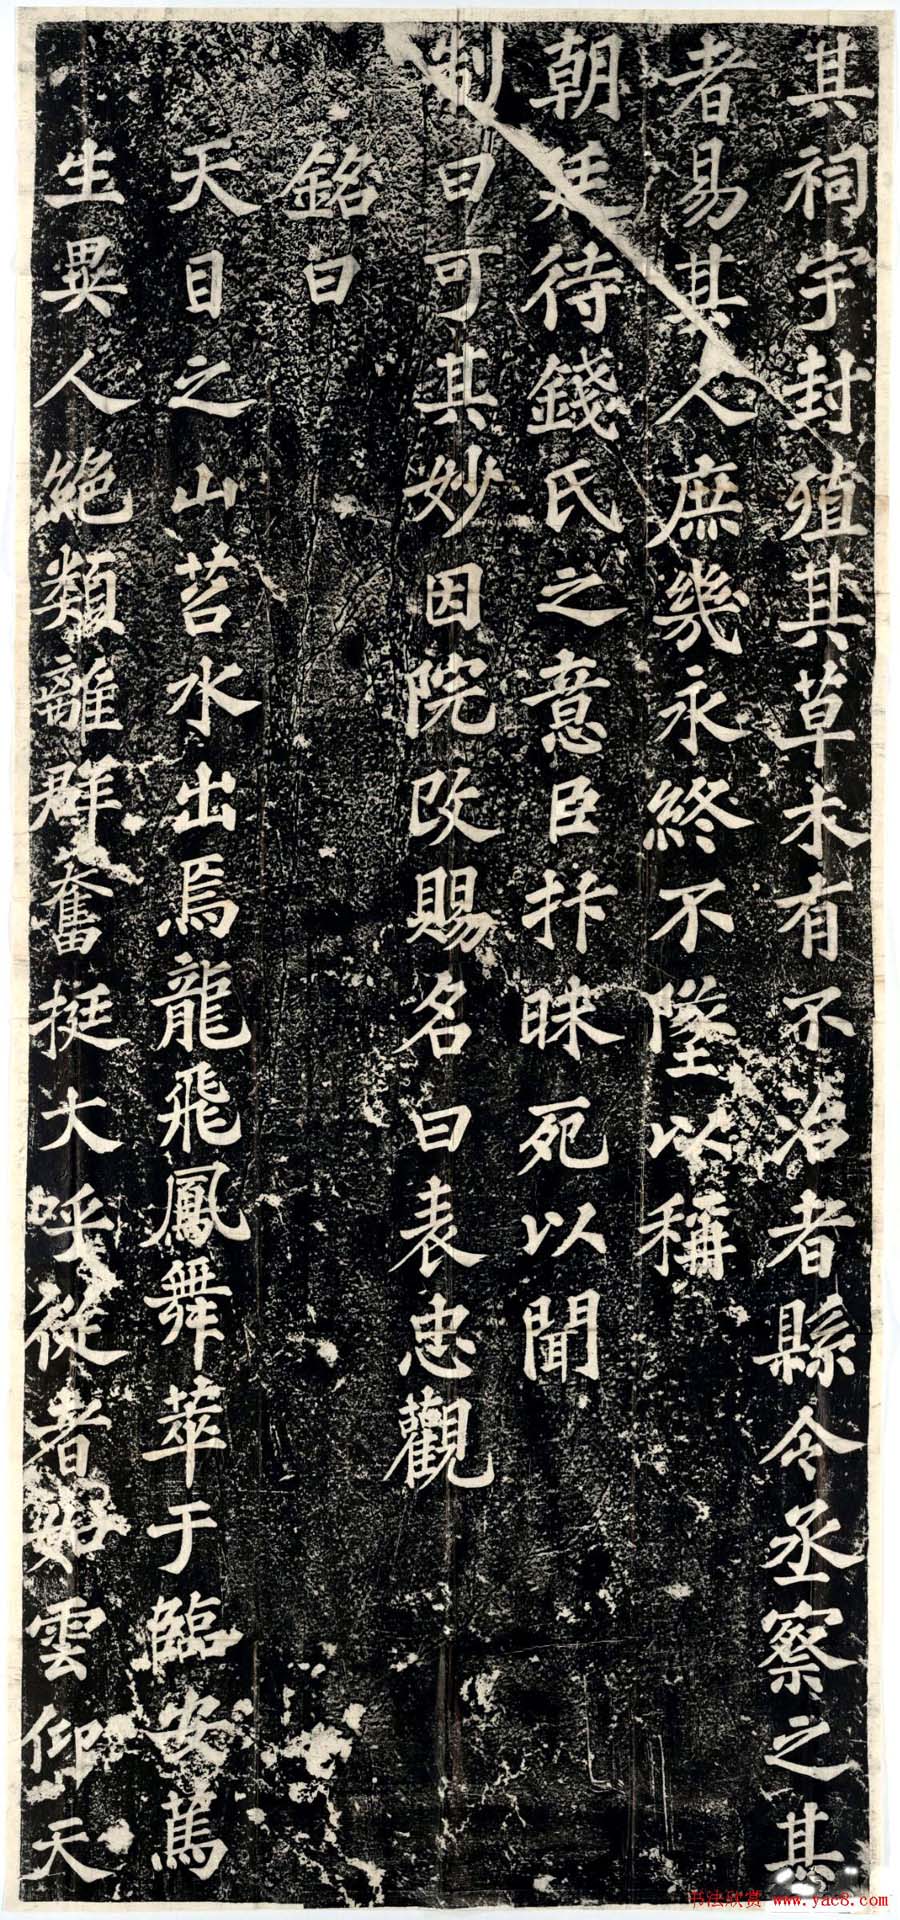 其祠宇封殖其草木有不治者縣令丞察之甚
者易其人庶幾永終不墜以稱
朝廷待錢氏之意臣抃昧死以聞
制曰可其妙因院改賜名曰表忠觀
銘曰
天目之山苕水出焉龍飛鳳舞萃于臨安篤
生異人絶類離群奮挺大呼從者如雲仰天
书法欣赏 www.yac8.com